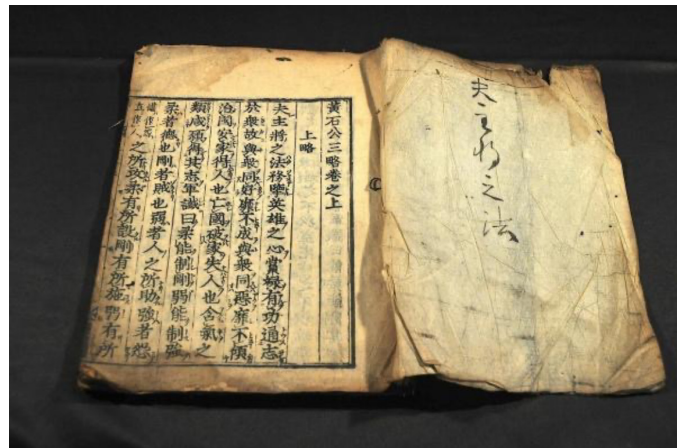 夫主将之法
黃石公三略卷之上
上略
夫主將之法務擥英雄之心賞祿有功通志
於衆故與衆同好靡不成與衆同惡靡不傾
治國安家得人也亡國破家失人也含氣之
類咸願得其志軍讖曰柔能制剛弱能制強
柔者德也剛者賊也弱者人之所助強者怨
之所攻柔有所設剛有所施弱有所